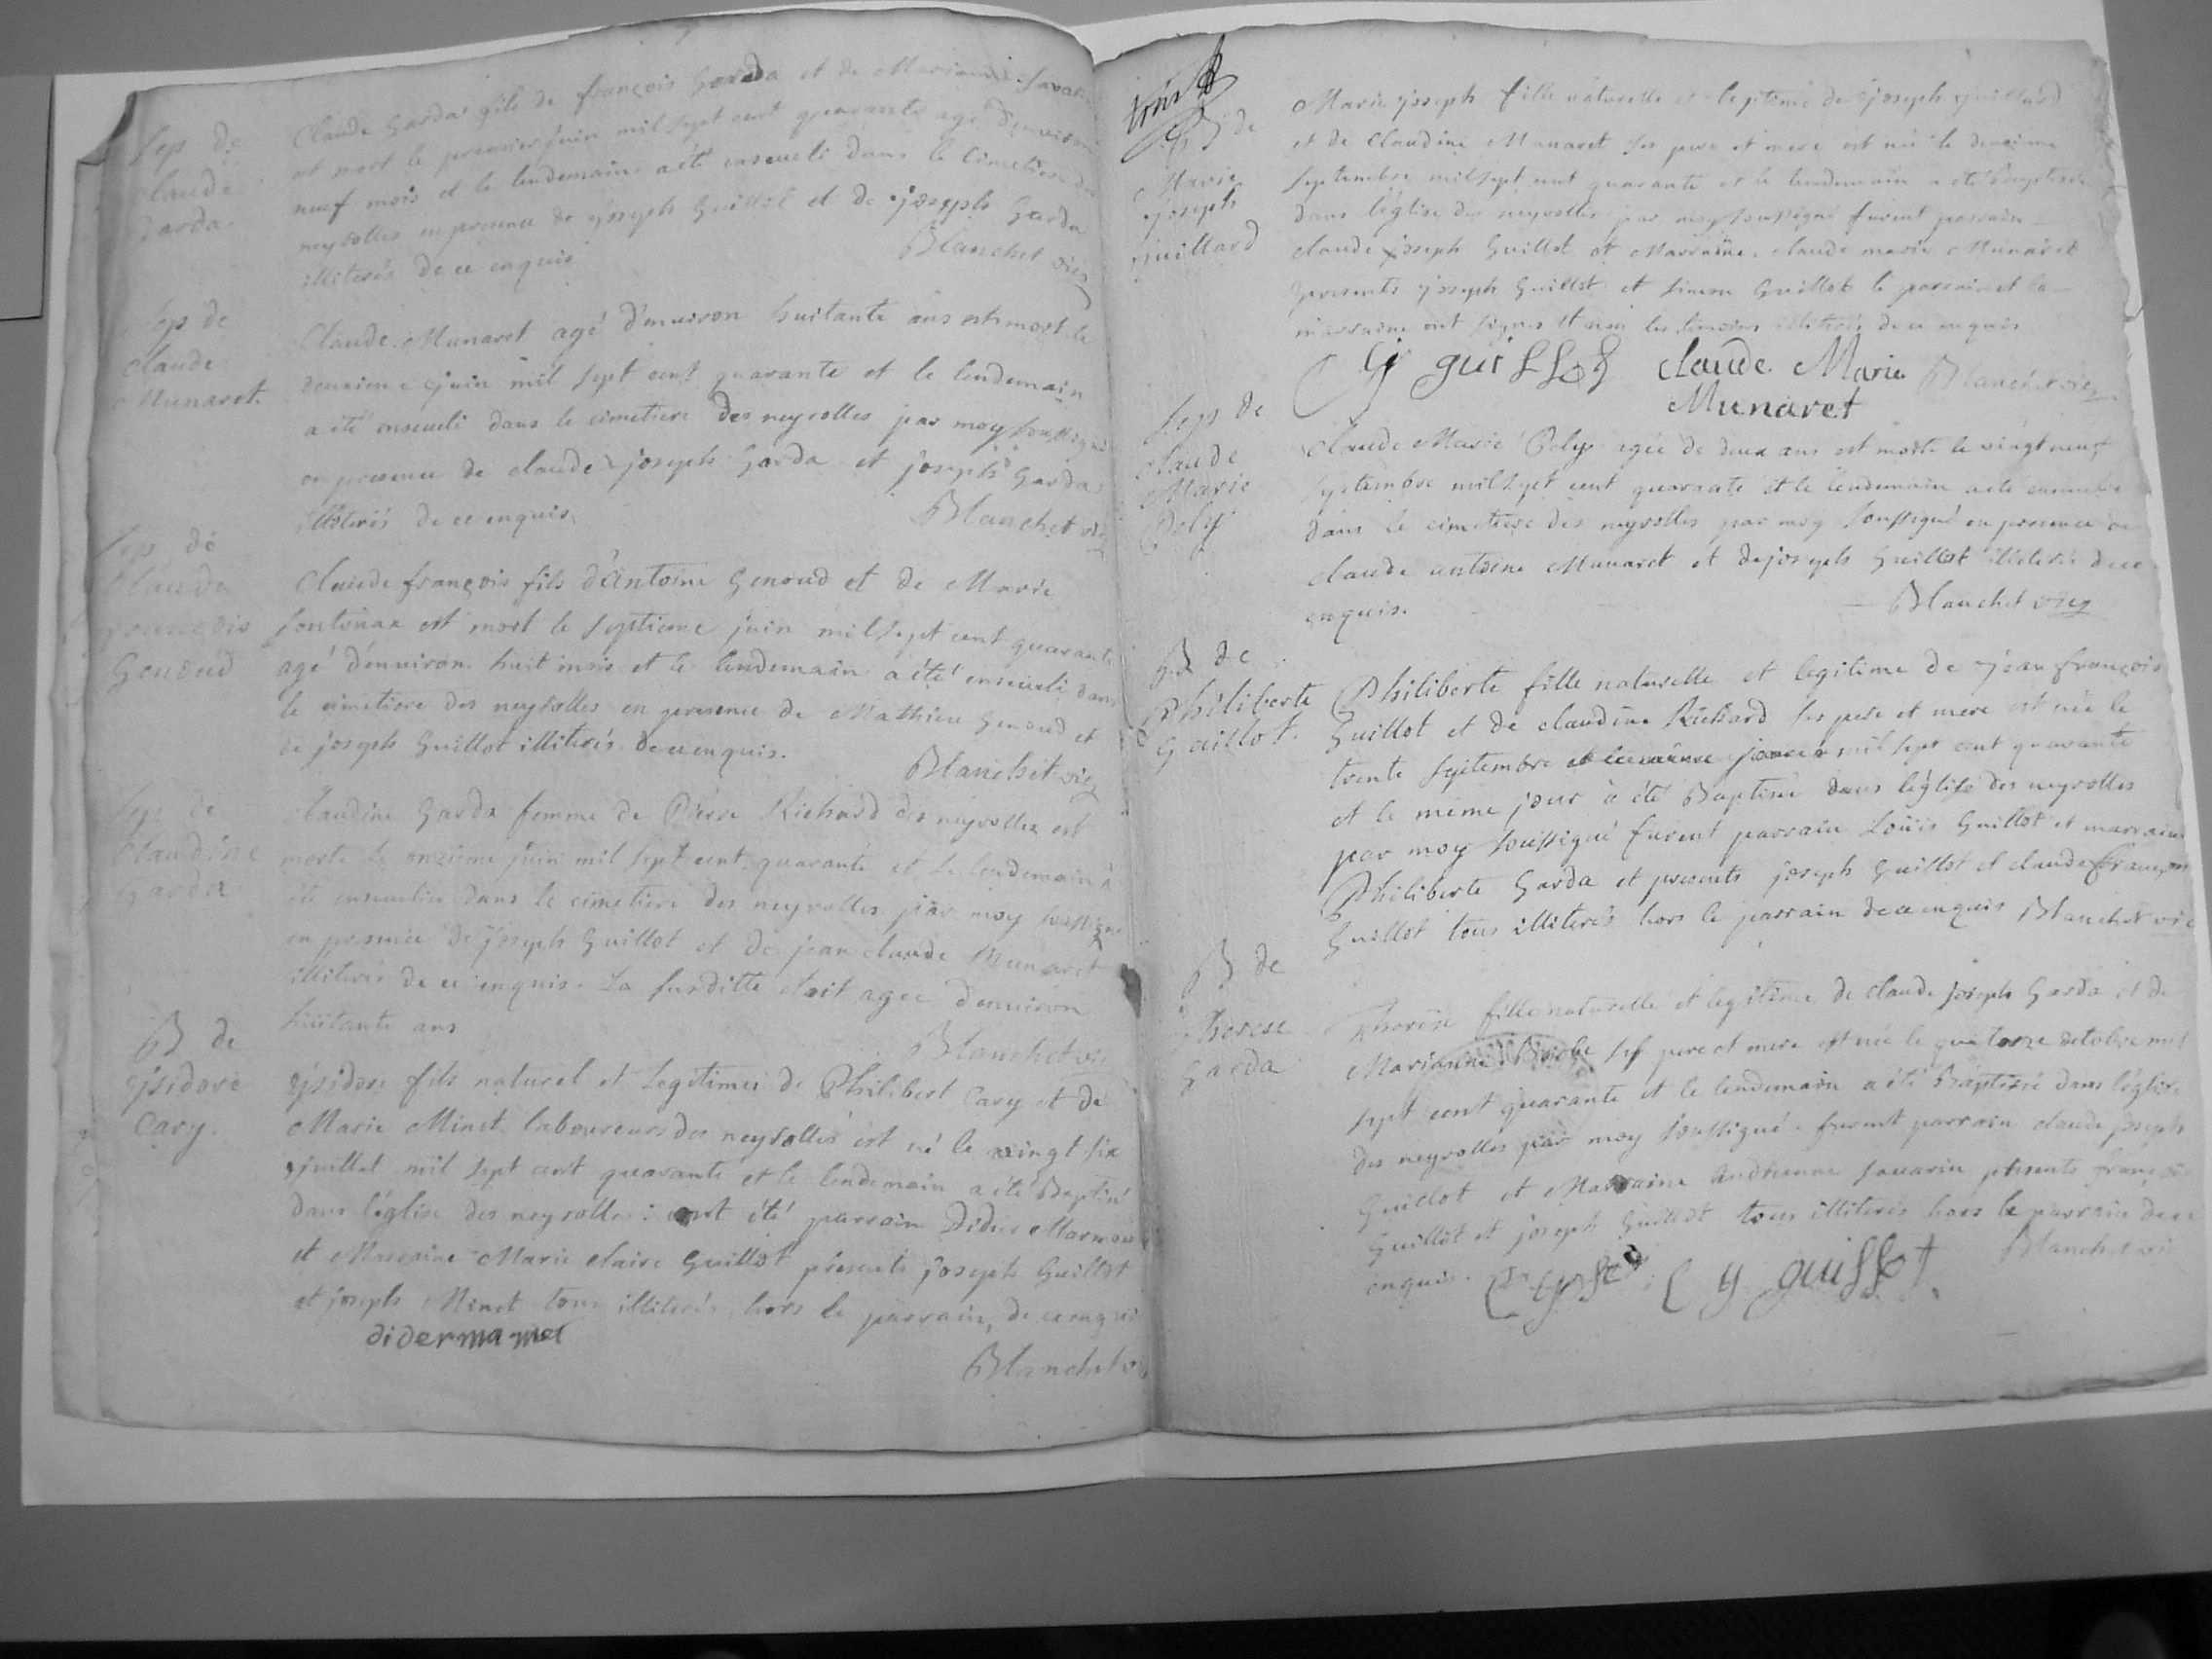 Sep de
claude
Garda
Claude Garda fils de françois Garda et de Marianne
est mort le premier juin mil sept cent quarante agé d'environ
neuf mois et le lendemain a été enseveli dans le cimetiere des
neyrolles en presence de joseph Guillot et de joseph Garda
illiterés de ce enquis
Blanchet vic
Sep de
claude
Munaret
Claude Munaret agé d'environ huitante ans est mort le
deuxieme juin mil sept cent quarante et le lendemain
a été enseveli dans le cimetiere des neyrolles par moy soussigné
en presence de claude joseph Garda et joseph Garda
illiterés de ce enquis
Blanchet vic
Sep de
Claude
françois
Genoud
Claude françois fils d'Antoine Genoud et de Marie
fontanax est mort le septieme juin mil sept cent quarante
agé d'environ huit mois et le lendemain a été enseveli dans
le cimetiere des neyrolles en presence de Mathieu Genoud et
de joseph Guillot illiterés de ce enquis.
Blanchet vic
Sep de
Claudine
Garda
Claudine Garda femme de Pierre Richard des neyrolles est
morte le onzieme juin mil sept cent quarante et le lendemain a
été ensevelie dans le cimetiere des neyrolles par moy soussigné
en presence de joseph Guillot et de jean claude Munaret
illiterés de ce enquis. La susditte etoit agee d'environ
huitante ans
Blanchet vic
B de
ysidore
Cary.
ysidore fils naturel et legitime de Philibert Cary et de
Marie Minet laboureurs des neyrolles est né le vingt six
juillet mil sept cent quarante et le lendemain a été Baptisé
dans l'église des neyrolles : ont été parrain Didier
et Marraine Marie claire Guillot presents joseph Guillot
et joseph Minet tous illiterés hors le parrain, de ce enquis
didermamet
Blanchet vic
B de
Marie
joseph
Guillard
Marie joseph fille naturelle et legitime de joseph Guillard
et de Claudine Munaret ses pere et mere est née le deuxieme
septembre mil sept cent quarante et le lendemain a été baptisée
dans l'église des neyrolles par moy soussigné furent parrain
claude joseph Guillot et Marraine claude marie Munaret
presents joseph Guillot et simon Guillot le parrain et la
marraine ont signes et non les temoins illiterés de ce enquis
Cy guillot claude Marie Blanchet vic
Munaret
Sep de
claude
Marie
Poly
Claude Marie Poly agée de deux ans est morte le vingt neuf
septembre mil sept cent quarante et le lendemain a été ensevelie
dans le cimetiere des neyrolles par moy soussigné en presence de
claude antoine Munaret et de joseph Guillot illiterés de ce
enquis.
Blanchet vic
B de
Philiberte
Guillot.
Philiberte fille naturelle et legitime de jean françois
Guillot et de claudine Richard ses pere et mere est née le
trente septembre mil sept cent quarante
et le même jour a été Baptisée dans l'église des neyrolles
par moy soussigné furent parrain Loüis Guillot et marraine
Philiberte Garda et presents joseph Guillot et claude françois
Guillot tous illiterés hors le parrain de ce enquis Blanchet vic
B de
therese
Garda
Therese fille naturelle et legitime de claude joseph Garda et de
Marianne ses pere et mere est née le quatorze octobre mil
sept cent quarante et le lendemain a été baptisée dans l'église
des neyrolles par moy soussigné furent parrain claude joseph
Guillot et Marraine Andrienne Savarin presents françois
Guillot et joseph Guillot tous illiterés hors le parrain de ce
enquis. Cy guillot Blanchet vic